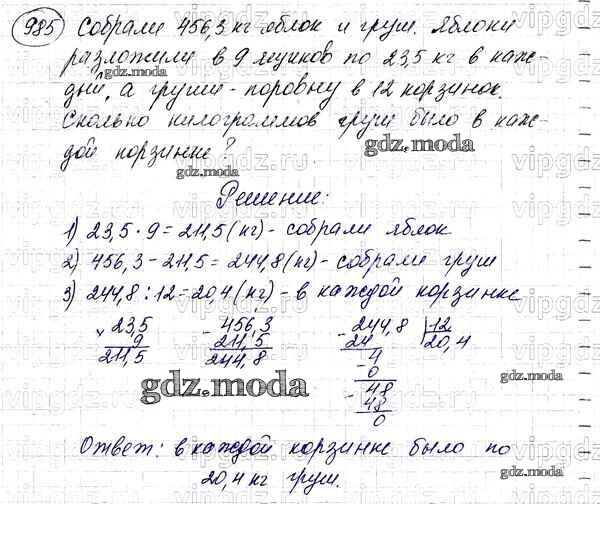 985 Собрали 456,3 кг яблок и груш. Яблоки
разложили в 9 ящиков по 23,5 кг в каж-
дый, а груши - поровну в 12 корзинок.
Сколько килограммов груш было в каж-
дой корзинке?
Решение:
1) 23,5 · 9 = 211,5 (кг) - собрали яблок
2) 456,3 - 211,5 = 244,8 (кг) - собрали груш
3) 244,8 : 12 = 20,4 (кг) - в каждой корзинке
× 23,5 - 456,3 - 244,8 | 12
9 211,5 24 20,4
211,5 244,8 - 4
0
- 48
48
0
Ответ: в каждой корзинке было по
20,4 кг груш.
gdz.moda
gdz.moda
gdz.moda
gdz.moda
gdz.moda
gdz.moda
gdz.moda
vipgdz.ru